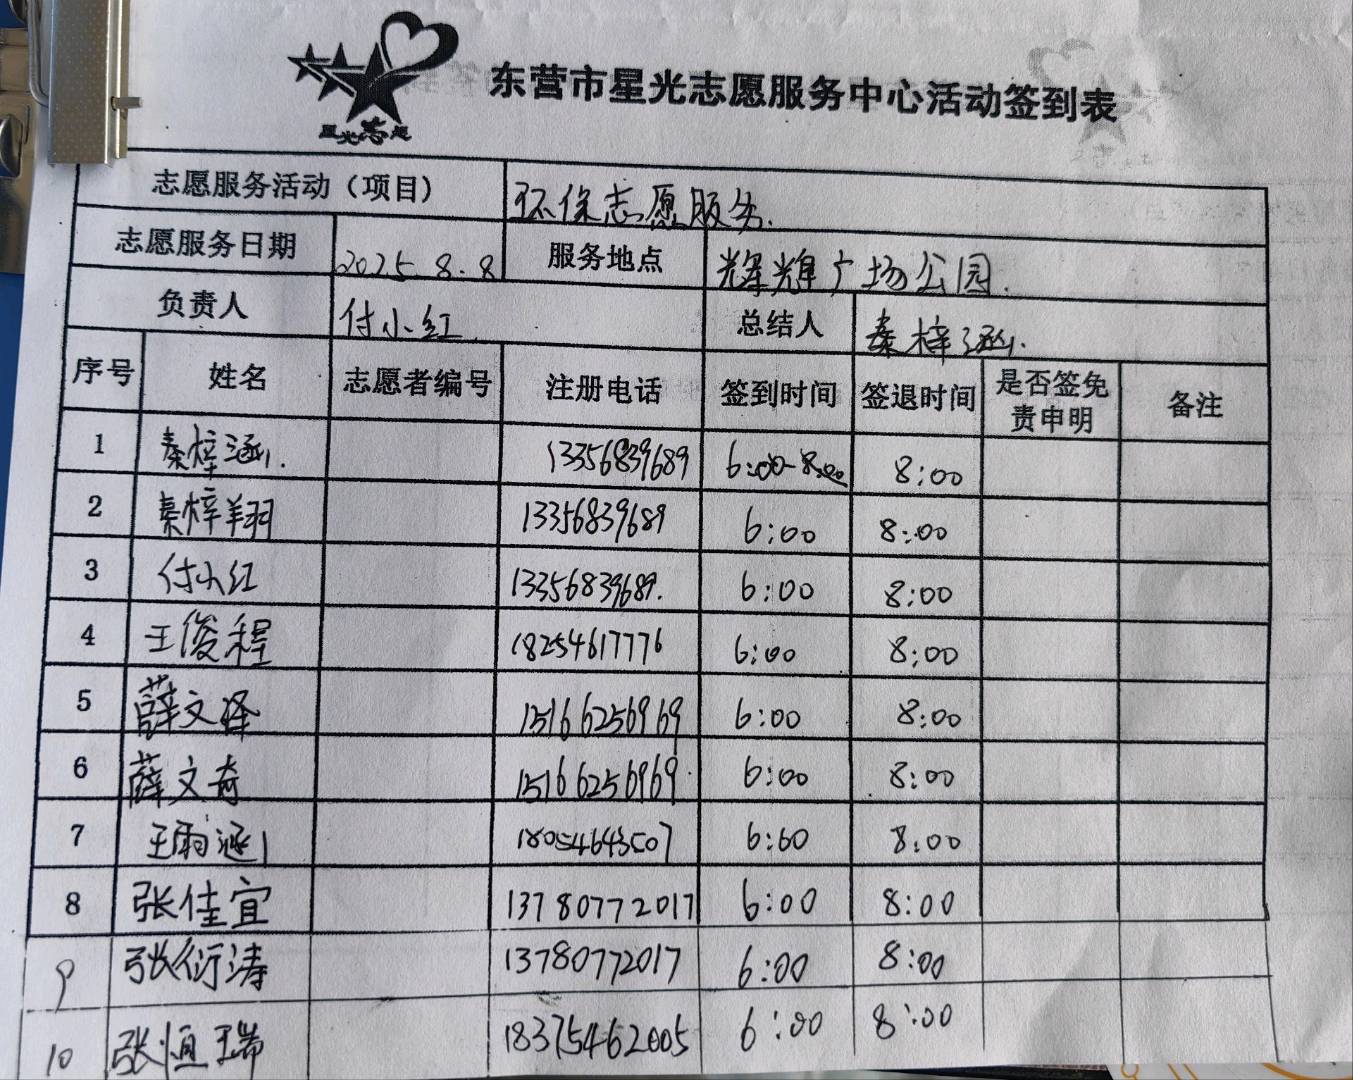 星光志愿
东营市星光志愿服务中心活动签到表
志愿服务活动（项目） 环保志愿服务.
志愿服务日期 2025.8.8 服务地点 辉辉广场公园.
负责人 付小红. 总结人 秦梓涵.
序号 姓名 志愿者编号 注册电话 签到时间 签退时间 是否签免责申明 备注
1 秦梓涵. 13356839689 6:00-8:00 8:00
2 秦梓翔 13356839689 6:00 8:00
3 付小红 13356839689. 6:00 8:00
4 王俊程 18254617776 6:00 8:00
5 薛文泽 15166256969 6:00 8:00
6 薛文奇 15166256969. 6:00 8:00
7 王雨涵 18054643507 6:00 8:00
8 张佳宜 13780772017 6:00 8:00
9 张衍涛 13780772017 6:00 8:00
10 张恒瑞 18375462005 6:00 8:00